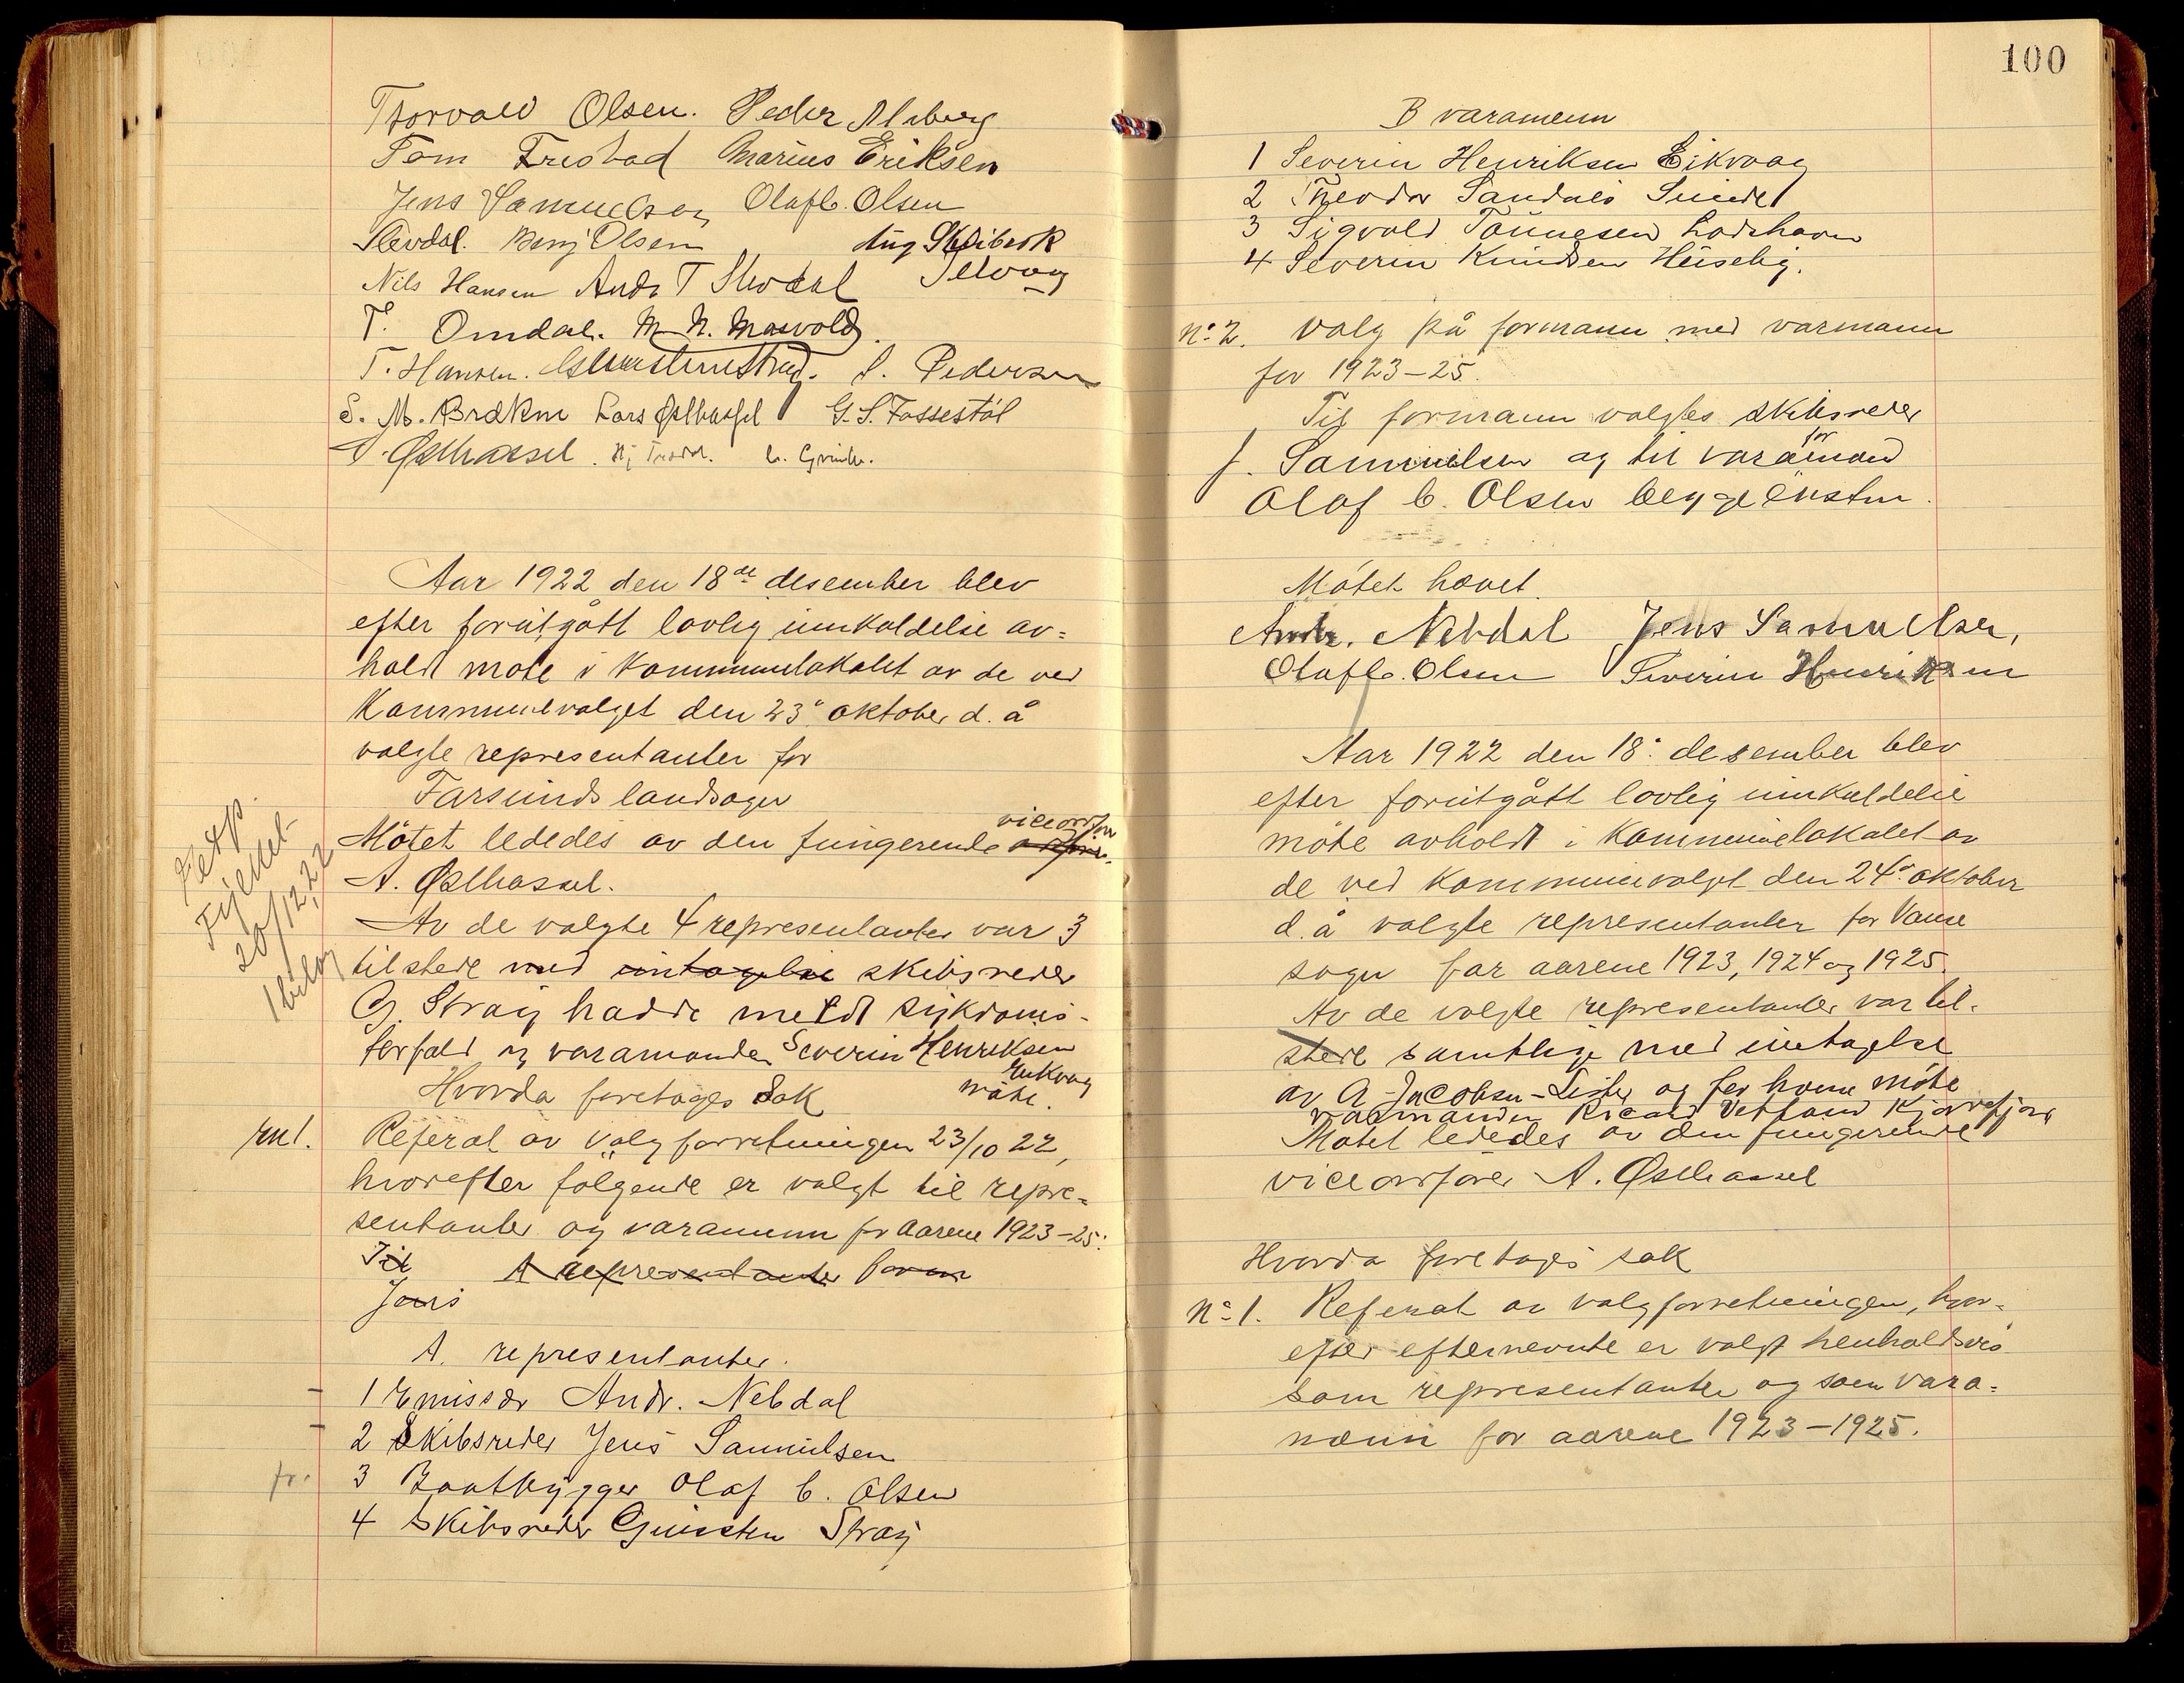 Thorvald Olsen. Peder Alsberg
Tom Frestad Marius Eriksen
Jens Samuelsen Olaf C. Olsen
Slevdal. Benj Olsen Aug Skeibrok
Nils Hansen Andr T Slevdal Selvaag
T. Omdal. M. N. Marvold.
T. Hansen. S. Pedersen
S. M. Brekne Lars Østhassel G. S. Fossestøl
A. Østhassel.
Aar 1922 den 18de desember blev
efter forutgått lovlig innkaldelse av=
holdt møte i kommunelokalet av de ved
Kommunevalget den 23° oktober d. å
valgte representanter for
Farsunds landsogn
Møtet lededes av den fungerende viceordfør
A. Østhassel.
Av de valgte 4 representanter var 3
tilstede med intagelse skibsreder
G. Stray hadde meldt sykdoms-
forfald og varamanden Severin Henriksen
Eikvaag
Hvorda foretages Sak møtte.
nr 1. Referat av valgforretningen 23/10 22,
hvorefter følgende er valgt til repre=
sentanter og varamenn for aarene 1923-25:
Til A representanter
Jens
A. representanter.
1 Emissær Andr. Nebdal
2 Skibsreder Jens Samuelsen
fr. 3 Baatbygger Olaf C. Olsen
4 Skibsreder Gunsten Stray
Fjellet
20/12.22
1 bilag
100
B varamenn
1 Severin Henriksen Eikvaag
2 Theodor Sandals Sunde
3 Sigvald Tønnesen Lodshavn
4 Severin Knudsen Huseby.
No 2. Valg på formann med varmann
for 1923-25.
Til formann valgtes skibsreder
J. Samuelsen og til varaformand
Olaf C. Olsen begge enstm.
Møtet hævet.
Andr. Nebdal Jens Samuelsen,
Olaf C. Olsen Severin Henriksen
Aar 1922 den 18. desember blev
efter forutgått lovlig innkaldelse
møte avholdt i Kommunelokalet av
de ved kommunevalget den 24° oktober
d. å valgte representanter for Vanse
sogn for aarene 1923, 1924 og 1925.
Av de valgte representanter var til-
stede samtlige med intagelse
av A. Jacobsen-Lister og for ham møtte
varmanden Ricard Vetland Kjørrefjord
Møtet lededes av den fungerende
viceordfører A. Østhassel
Hvorda foretages sak
No 1. Referat av valgforretningen, hvor-
efter efternevnte er valgt henholdsvis
som representanter og som vara=
menn for aarene 1923-1925.